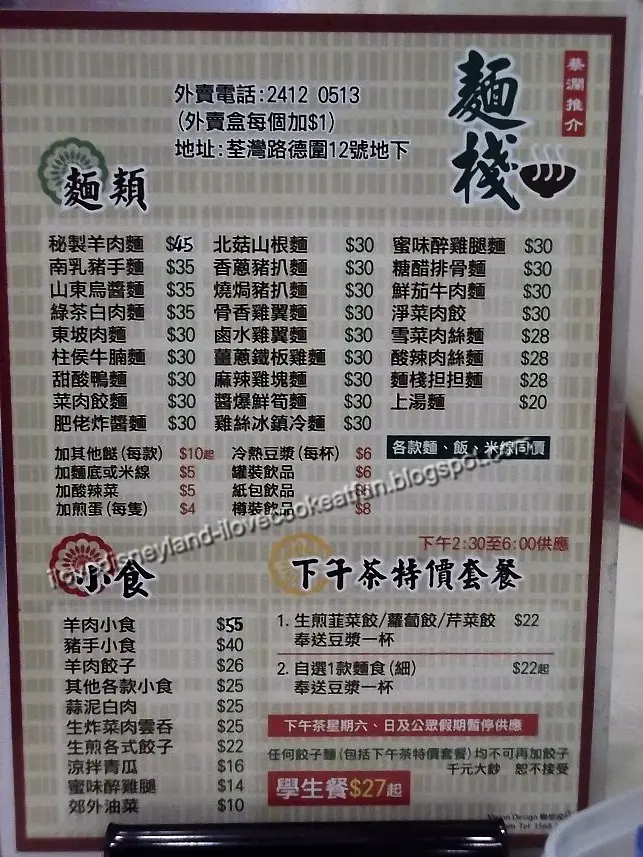 外賣電話:2412 0513
(外賣盒每個加$1)
地址:荃灣路德圍12號地下
麵棧
蔡瀾推介
麵類
秘製羊肉麵 $45
南乳豬手麵 $35
山東烏醬麵 $35
綠茶白肉麵 $35
東坡肉麵 $30
柱侯牛腩麵 $30
甜酸鴨麵 $30
菜肉餃麵 $30
肥佬炸醬麵 $30
北菇山根麵 $30
香蔥豬扒麵 $30
燒焗豬扒麵 $30
骨香雞翼麵 $30
鹵水雞翼麵 $30
薑蔥鐵板雞麵 $30
麻辣雞塊麵 $30
醬爆鮮筍麵 $30
雞絲冰鎮冷麵 $30
蜜味醉雞腿麵 $30
糖醋排骨麵 $30
鮮茄牛肉麵 $30
淨菜肉餃 $30
雪菜肉絲麵 $28
酸辣肉絲麵 $28
麵棧担担麵 $28
上湯麵 $20
加其他餸(每款) $10起
加麵底或米線 $5
加酸辣菜 $5
加煎蛋(每隻) $4
冷熱豆漿(每杯) $6
罐裝飲品 $6
紙包飲品
樽裝飲品 $8
各款麵、飯、米線同價
ilovedisneyland-ilovecookeatfun.blogspot.com
小食
羊肉小食 $55
豬手小食 $40
羊肉餃子 $26
其他各款小食 $25
蒜泥白肉 $25
生炸菜肉雲吞 $25
生煎各式餃子 $22
涼拌青瓜 $16
蜜味醉雞腿 $14
郊外油菜 $10
下午2:30至6:00供應
下午茶特價套餐
1. 生煎韮菜餃/蘿蔔餃/芹菜餃 $22
奉送豆漿一杯
2. 自選1款麵食(細) $22起
奉送豆漿一杯
下午茶星期六、日及公眾假期暫停供應
任何餃子麵(包括下午茶特價套餐)均不可再加餃子
千元大鈔 恕不接受
學生餐$27起